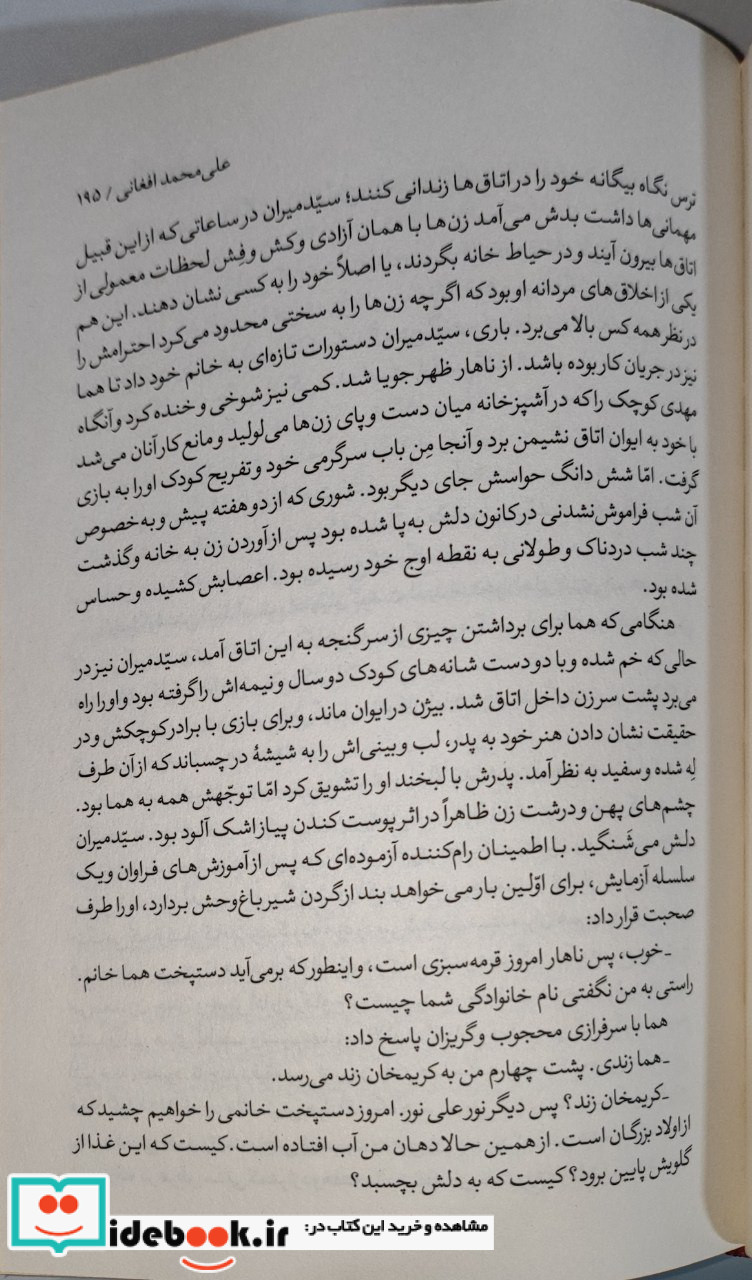 علی‌محمد افغانی / ۱۹۵
ترس نگاه بیگانه خود را در اتاق‌ها زندانی کنند؛ سیّدمیران در ساعاتی که از این قبیل
مهمانی‌ها داشت بدش می‌آمد زن‌ها با همان آزادی و کش و فِش لحظات معمولی از
اتاق‌ها بیرون آیند و در حیاط خانه بگردند، یا اصلاً خود را به کسی نشان دهند. این هم
یکی از اخلاق‌های مردانه او بود که اگرچه زن‌ها را به سختی محدود می‌کرد احترامش را
در نظر همه کس بالا می‌برد. باری، سیّدمیران دستورات تازه‌ای به خانم خود داد تا هما
نیز در جریان کار بوده باشد. از ناهار ظهر جویا شد. کمی نیز شوخی و خنده کرد و آنگاه
مهدی کوچک را که در آشپزخانه میان دست و پای زن‌ها می‌لولید و مانع کار آنان می‌شد
با خود به ایوان اتاق نشیمن برد و آنجا مِن باب سرگرمی خود و تفریح کودک او را به بازی
گرفت. امّا شش دانگ حواسش جای دیگر بود. شوری که از دو هفته پیش و به‌خصوص
آن شب فراموش‌نشدنی در کانون دلش به‌پا شده بود پس از آوردن زن به خانه و گذشت
چند شب دردناک و طولانی به نقطه اوج خود رسیده بود. اعصابش کشیده و حساس
شده بود.
هنگامی که هما برای برداشتن چیزی از سرگنجه به این اتاق آمد، سیّدمیران نیز در
حالی که خم شده و با دو دست شانه‌های کودک دو سال و نیمه‌اش را گرفته بود و او را راه
می‌برد پشت سر زن داخل اتاق شد. بیژن در ایوان ماند، و برای بازی با برادر کوچکش و در
حقیقت نشان دادن هنر خود به پدر، لب و بینی‌اش را به شیشهٔ در چسباند که از آن طرف
لِه شده و سفید به نظر آمد. پدرش با لبخند او را تشویق کرد امّا توجّهش همه به هما بود.
چشم‌های پهن و درشت زن ظاهراً در اثر پوست کندن پیاز اشک آلود بود. سیّدمیران
دلش می‌شَنگید. با اطمینان رام‌کننده آزموده‌ای که پس از آموزش‌های فراوان و یک
سلسله آزمایش، برای اوّلین بار می‌خواهد بند از گردن شیر باغ‌وحش بردارد، او را طرف
صحبت قرار داد:
-خوب، پس ناهار امروز قرمه‌سبزی است، و اینطور که برمی‌آید دستپخت هما خانم.
راستی به من نگفتی نام خانوادگی شما چیست؟
هما با سرفرازی محجوب و گریزان پاسخ داد:
-هما زندی. پشت چهارم من به کریمخان زند می‌رسد.
-کریمخان زند؟ پس دیگر نور علی نور. امروز دستپخت خانمی را خواهیم چشید که
از اولاد بزرگان است. از همین حالا دهان من آب افتاده است. کیست که این غذا از
گلویش پایین برود؟ کیست که به دلش بچسبد؟
idebook.ir
مشاهده و خرید این کتاب در: